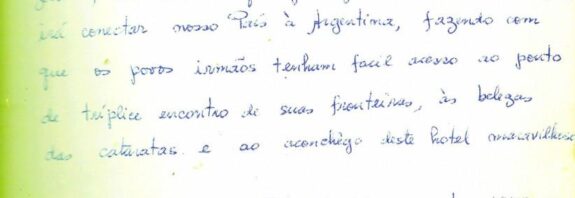 irá conectar nosso País à Argentina, fazendo com
que os povos irmãos tenham facil acesso ao ponto
de tríplice encontro de suas fronteiras, às belezas
das cataratas e ao aconchêgo deste hotel maravilhoso